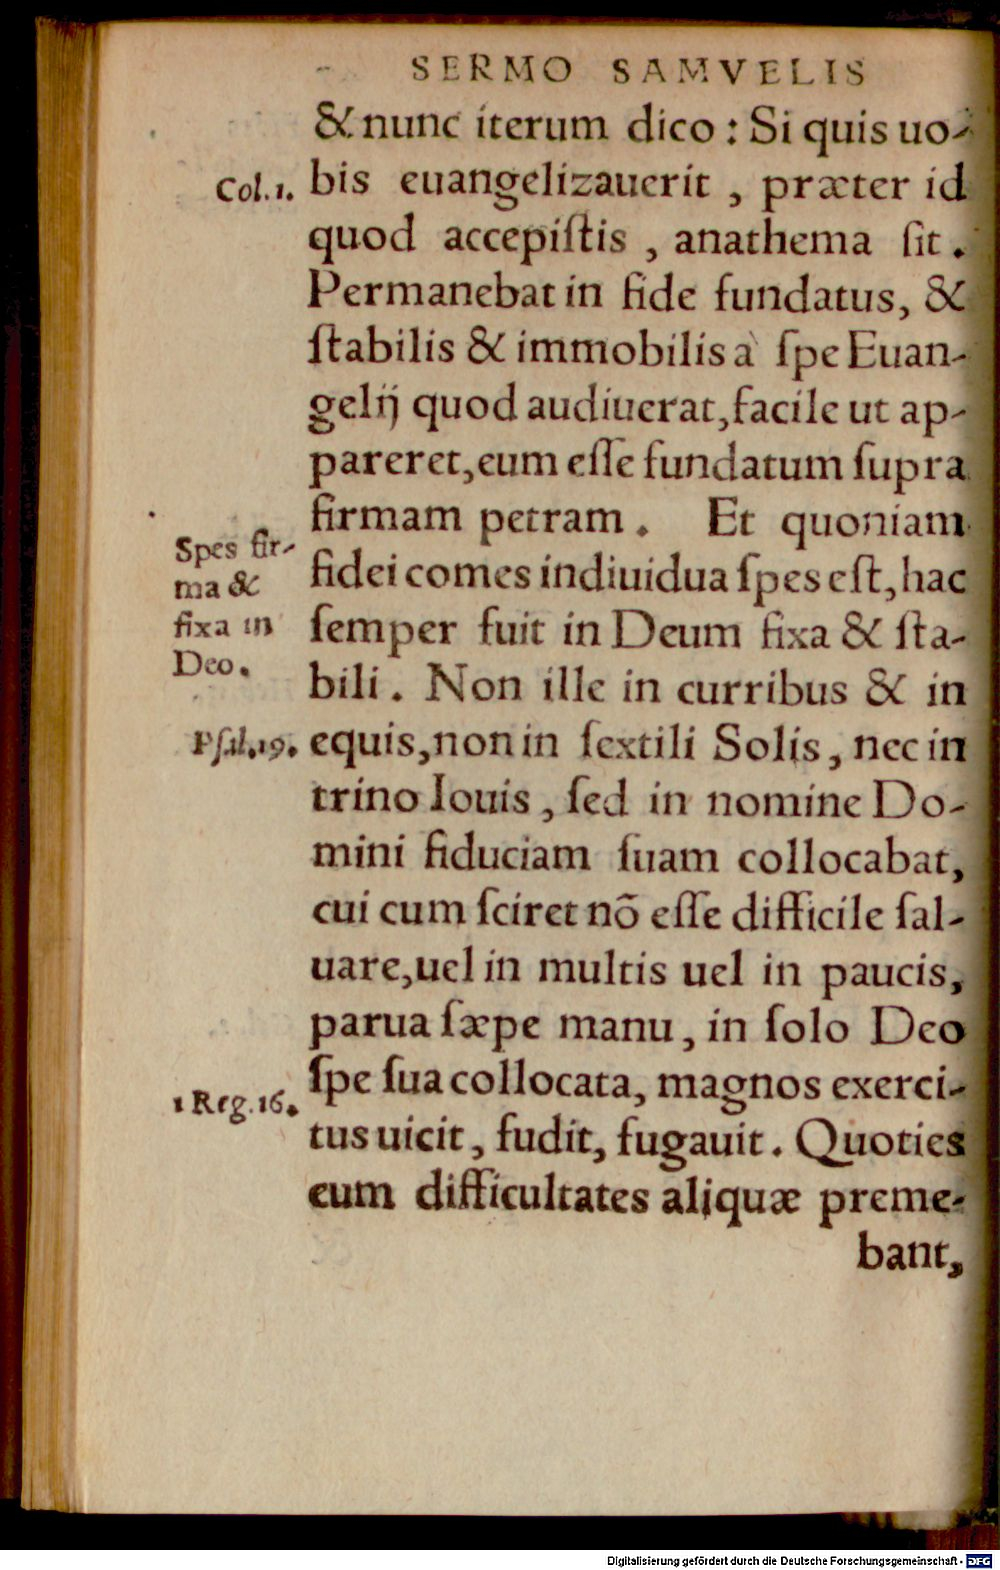 SERMO SAMVELIS
& nunc iterum dico : Si quis uo-
Col. 1.
bis euangelizauerit , præter id
quod accepiſtis , anathema ſit .
Permanebat in fide fundatus, &
ſtabilis & immobilis à ſpe Euan-
gelij quod audiuerat, facile ut ap-
pareret, eum eſſe fundatum ſupra
firmam petram . Et quoniam
Spes fir-
ma &
fixa in
Deo.
fidei comes indiuidua ſpes eſt, hac
ſemper fuit in Deum fixa & ſta-
bili . Non ille in curribus & in
Pſal. 19.
equis, non in ſextili Solis, nec in
trino Iouis , ſed in nomine Do-
mini fiduciam ſuam collocabat,
cui cum ſciret nõ eſſe difficile ſal-
uare, uel in multis uel in paucis,
parua ſæpe manu, in ſolo Deo
ſpe ſua collocata, magnos exerci-
1 Reg. 16.
tus uicit, fudit, fugauit . Quoties
eum difficultates aliquæ preme-
bant,
Digitalisierung gefördert durch die Deutsche Forschungsgemeinschaft - DFG